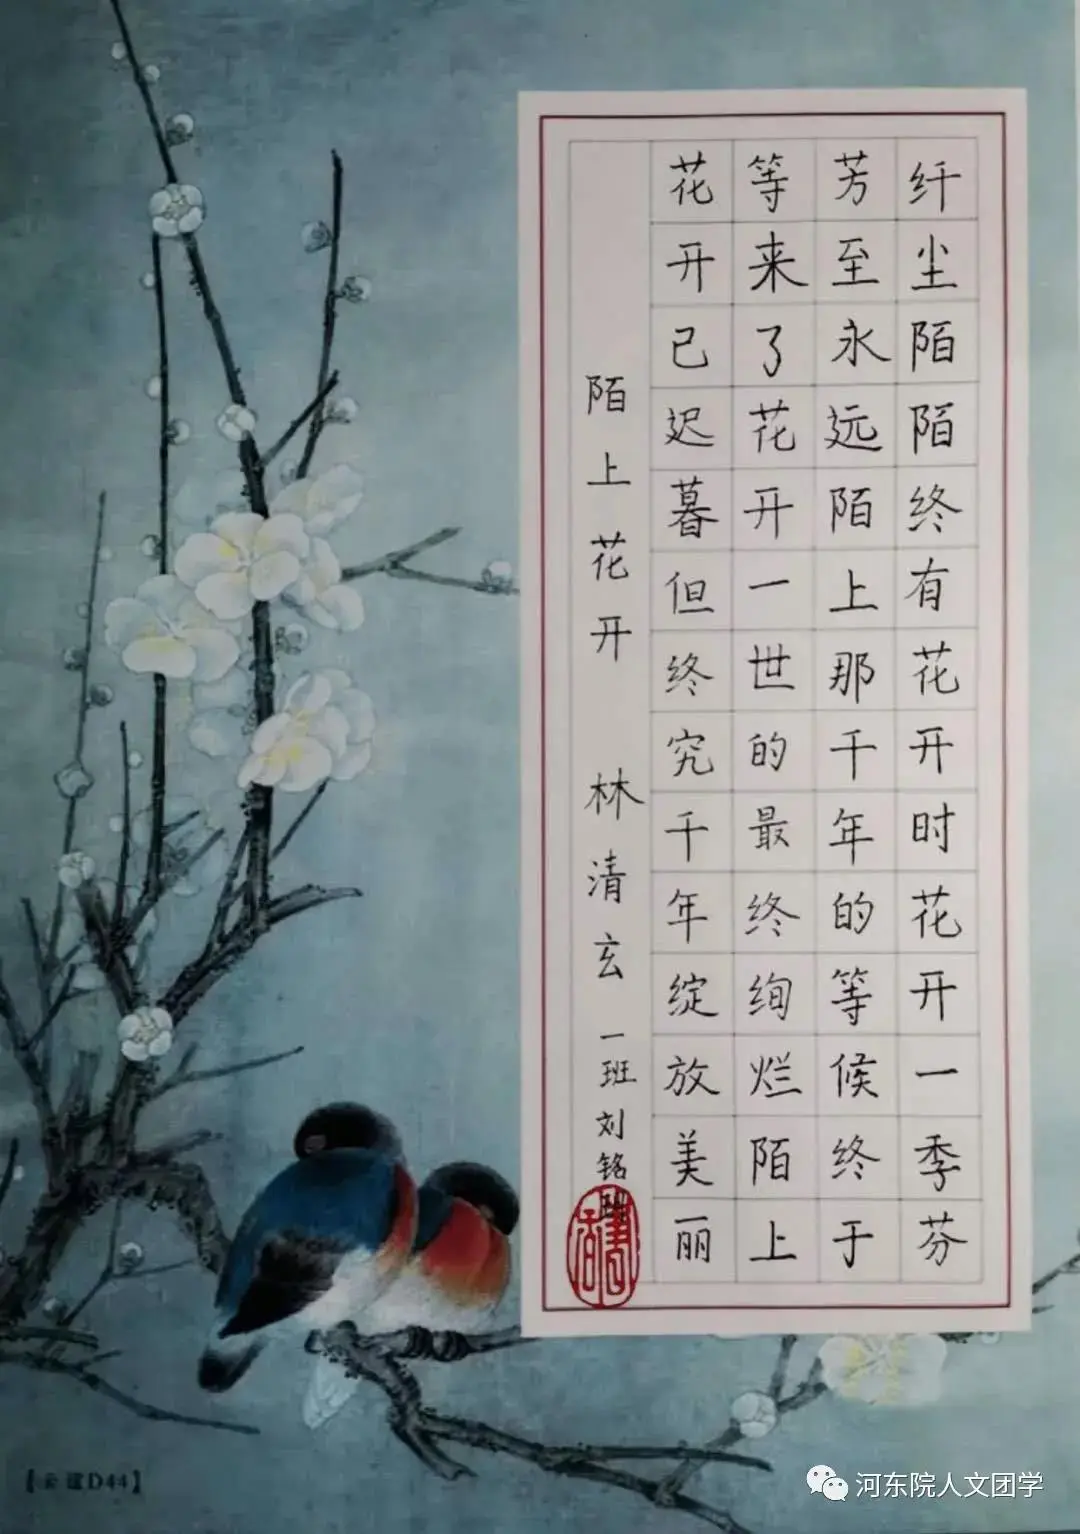 纤尘陌陌终有花开时花开一季芬
芳至永远陌上那千年的等候终于
等来了花开一世的最终绚烂陌上
花开已迟暮但终究千年绽放美丽
陌上花开 林清玄 一班刘铭
河东院人文团学